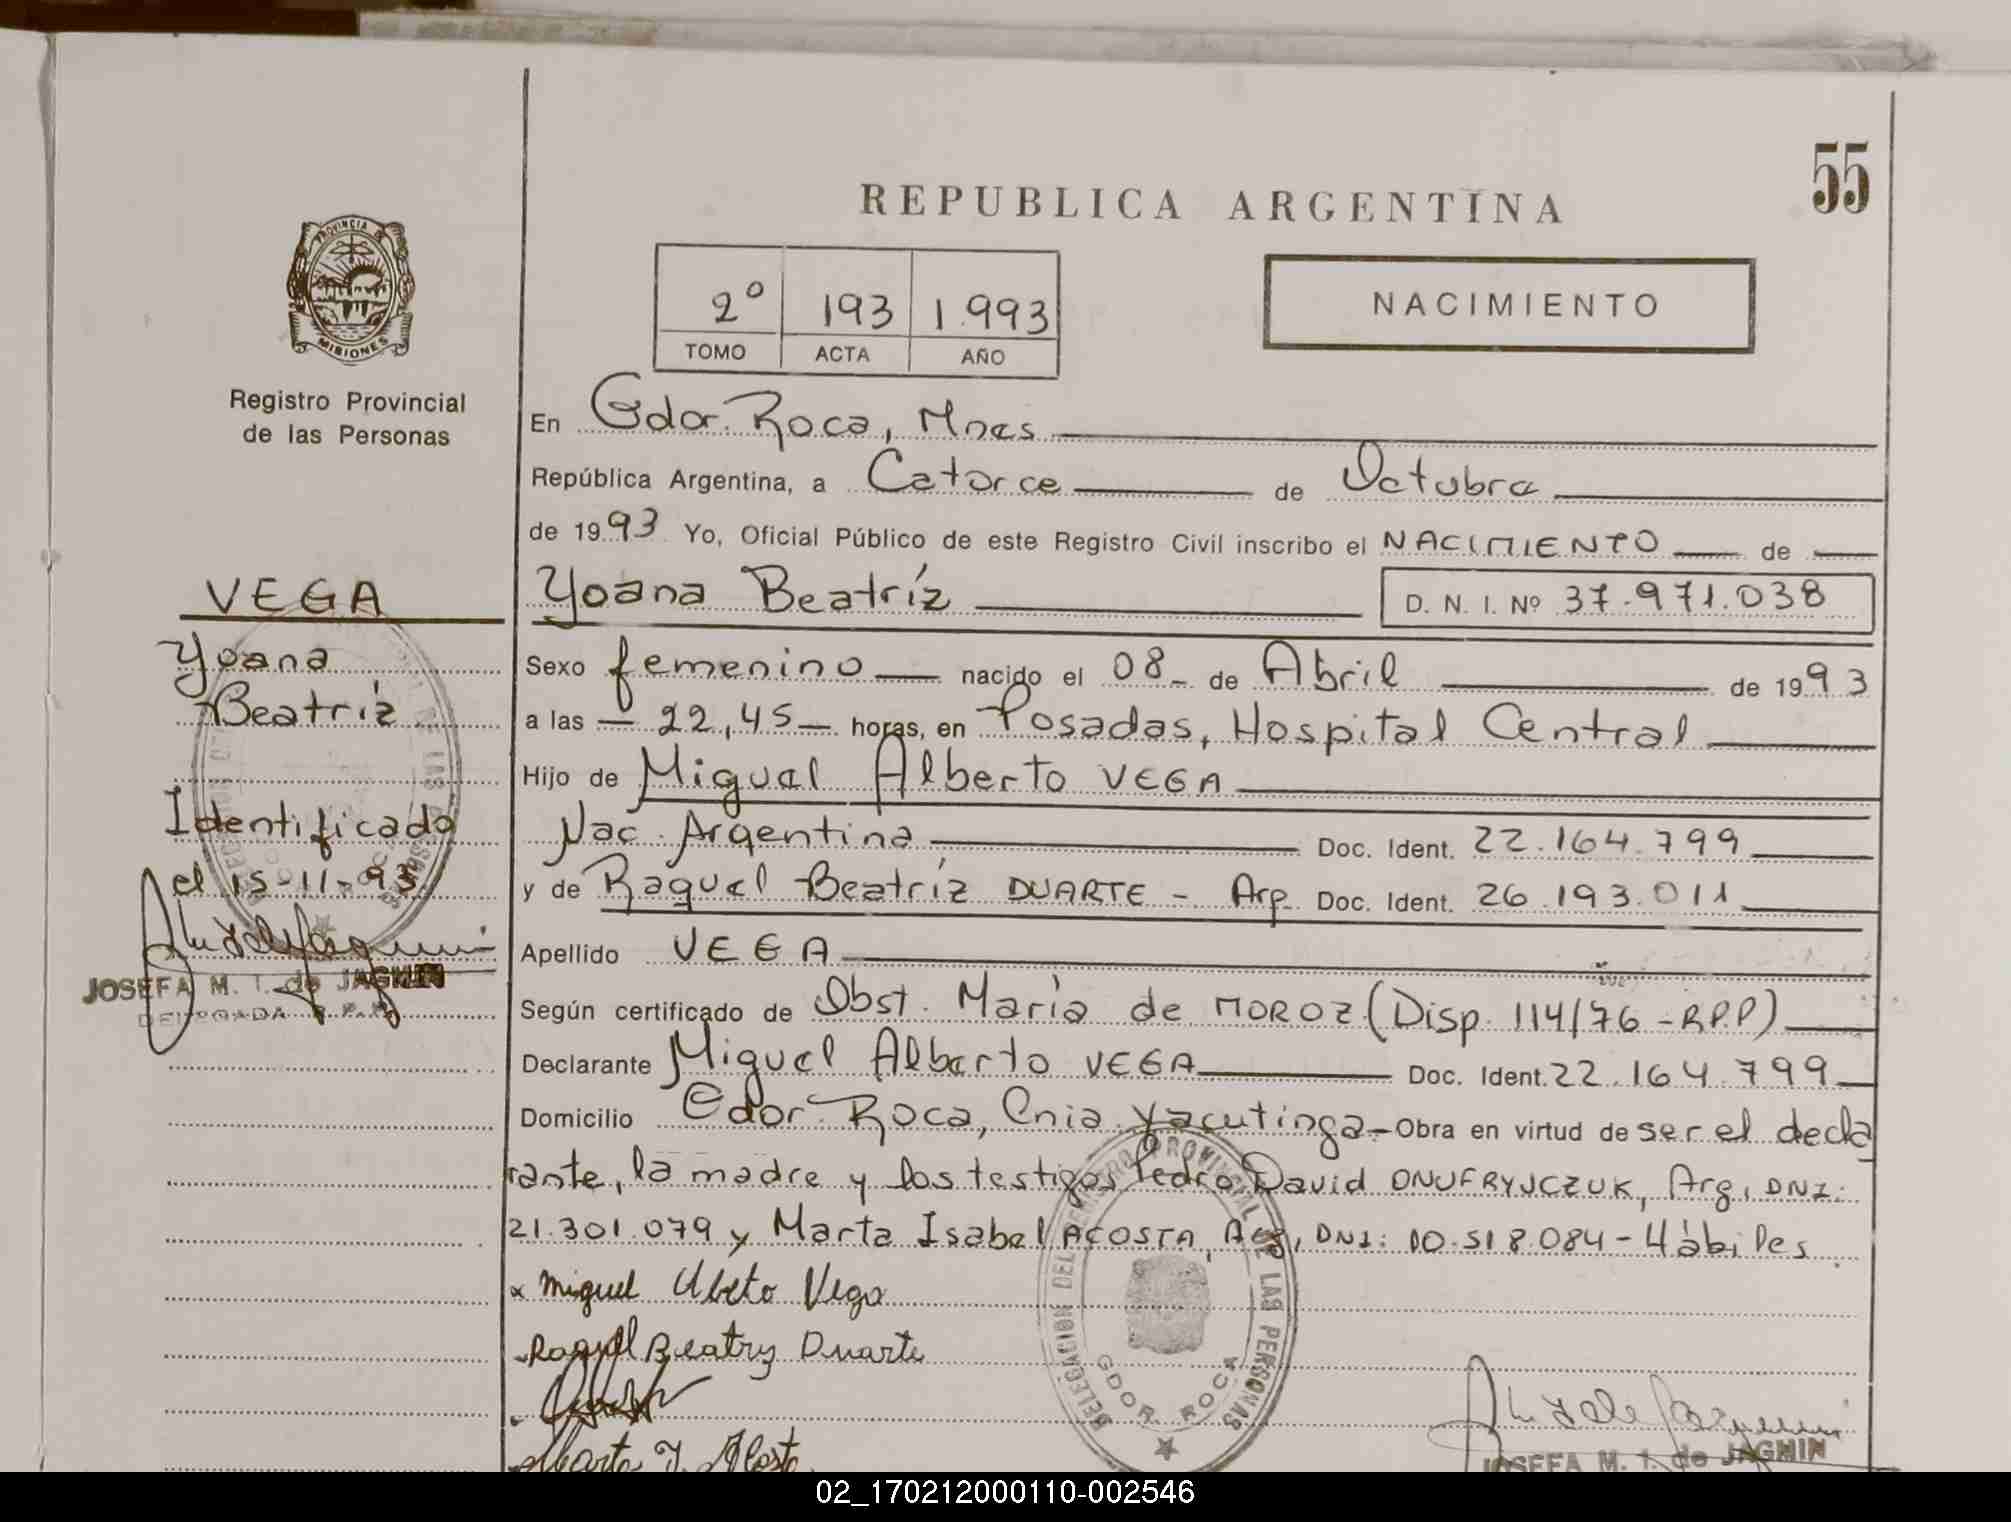 55
REPUBLICA ARGENTINA
PROVINCIA DE
MISIONES
Registro Provincial
de las Personas
2º 193 1.993
TOMO ACTA AÑO
NACIMIENTO
En Gdor. Roca, Mnes
República Argentina, a Catorce de Octubre
de 1993 Yo, Oficial Público de este Registro Civil inscribo el NACIMIENTO de
Yoana Beatríz D. N. I. Nº 37.971.038
Sexo femenino nacido el 08 de Abril de 1993
a las 22,45 horas, en Posadas, Hospital Central
Hijo de Miguel Alberto VEGA
Nac. Argentina Doc. Ident. 22.164.799
y de Raquel Beatríz DUARTE - Arg. Doc. Ident. 26.193.011
Apellido VEGA
Según certificado de Obst. María de MOROZ (Disp. 114/76 - RPP)
Declarante Miguel Alberto VEGA Doc. Ident. 22.164.799
Domicilio Gdor. Roca, Cnia Yacutinga - Obra en virtud de ser el decla
rante, la madre y los testigos Pedro David ONUFRYJCZUK, Arg, DNI:
21.301.079 y Marta Isabel ACOSTA, Arg, DNI: 10.518.084 - Hábiles
x Miguel Alberto Vega
Raquel Beatriz Duarte
Marta I. Acosta
DELEGACION DEL REGISTRO PROVINCIAL DE LAS PERSONAS
GDOR. ROCA
JOSEFA M. T. de JAGMIN
VEGA
Yoana
Beatríz
Identificado
el 15-11-93
JOSEFA M. T. de JAGMIN
DELEGADA R. P. P.
02_170212000110-002546